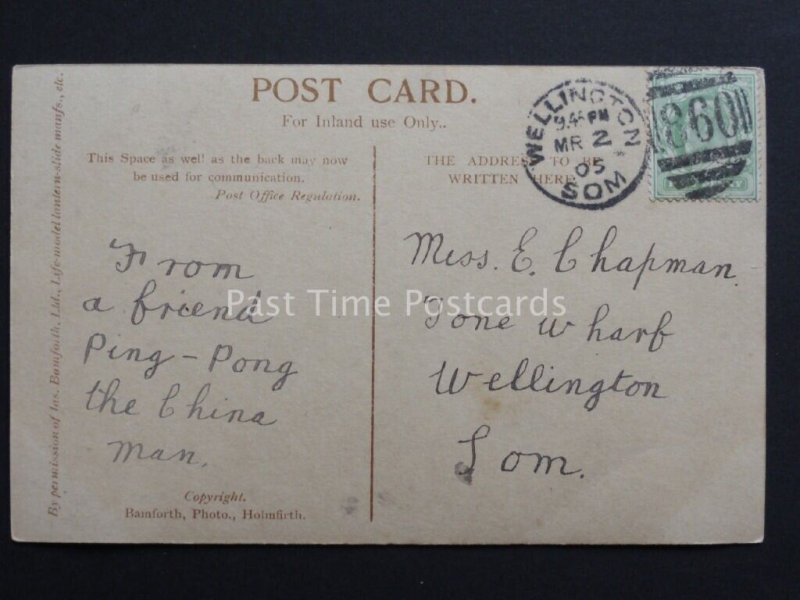 POST CARD.
For Inland use Only..
This Space as well as the back may now
be used for communication.
Post Office Regulation.
THE ADDRESS TO BE
WRITTEN HERE
WELLINGTON
9.45 PM
MR 2
05
SOM
860
From
a friend
Ping-Pong
the China
man.
Miss. E. Chapman.
Tone wharf
Wellington
Som.
Past Time Postcards
Copyright.
Bamforth, Photo., Holmfirth.
By permission of Jas. Bamforth, Ltd., Life-model lantern-slide manfs., etc.